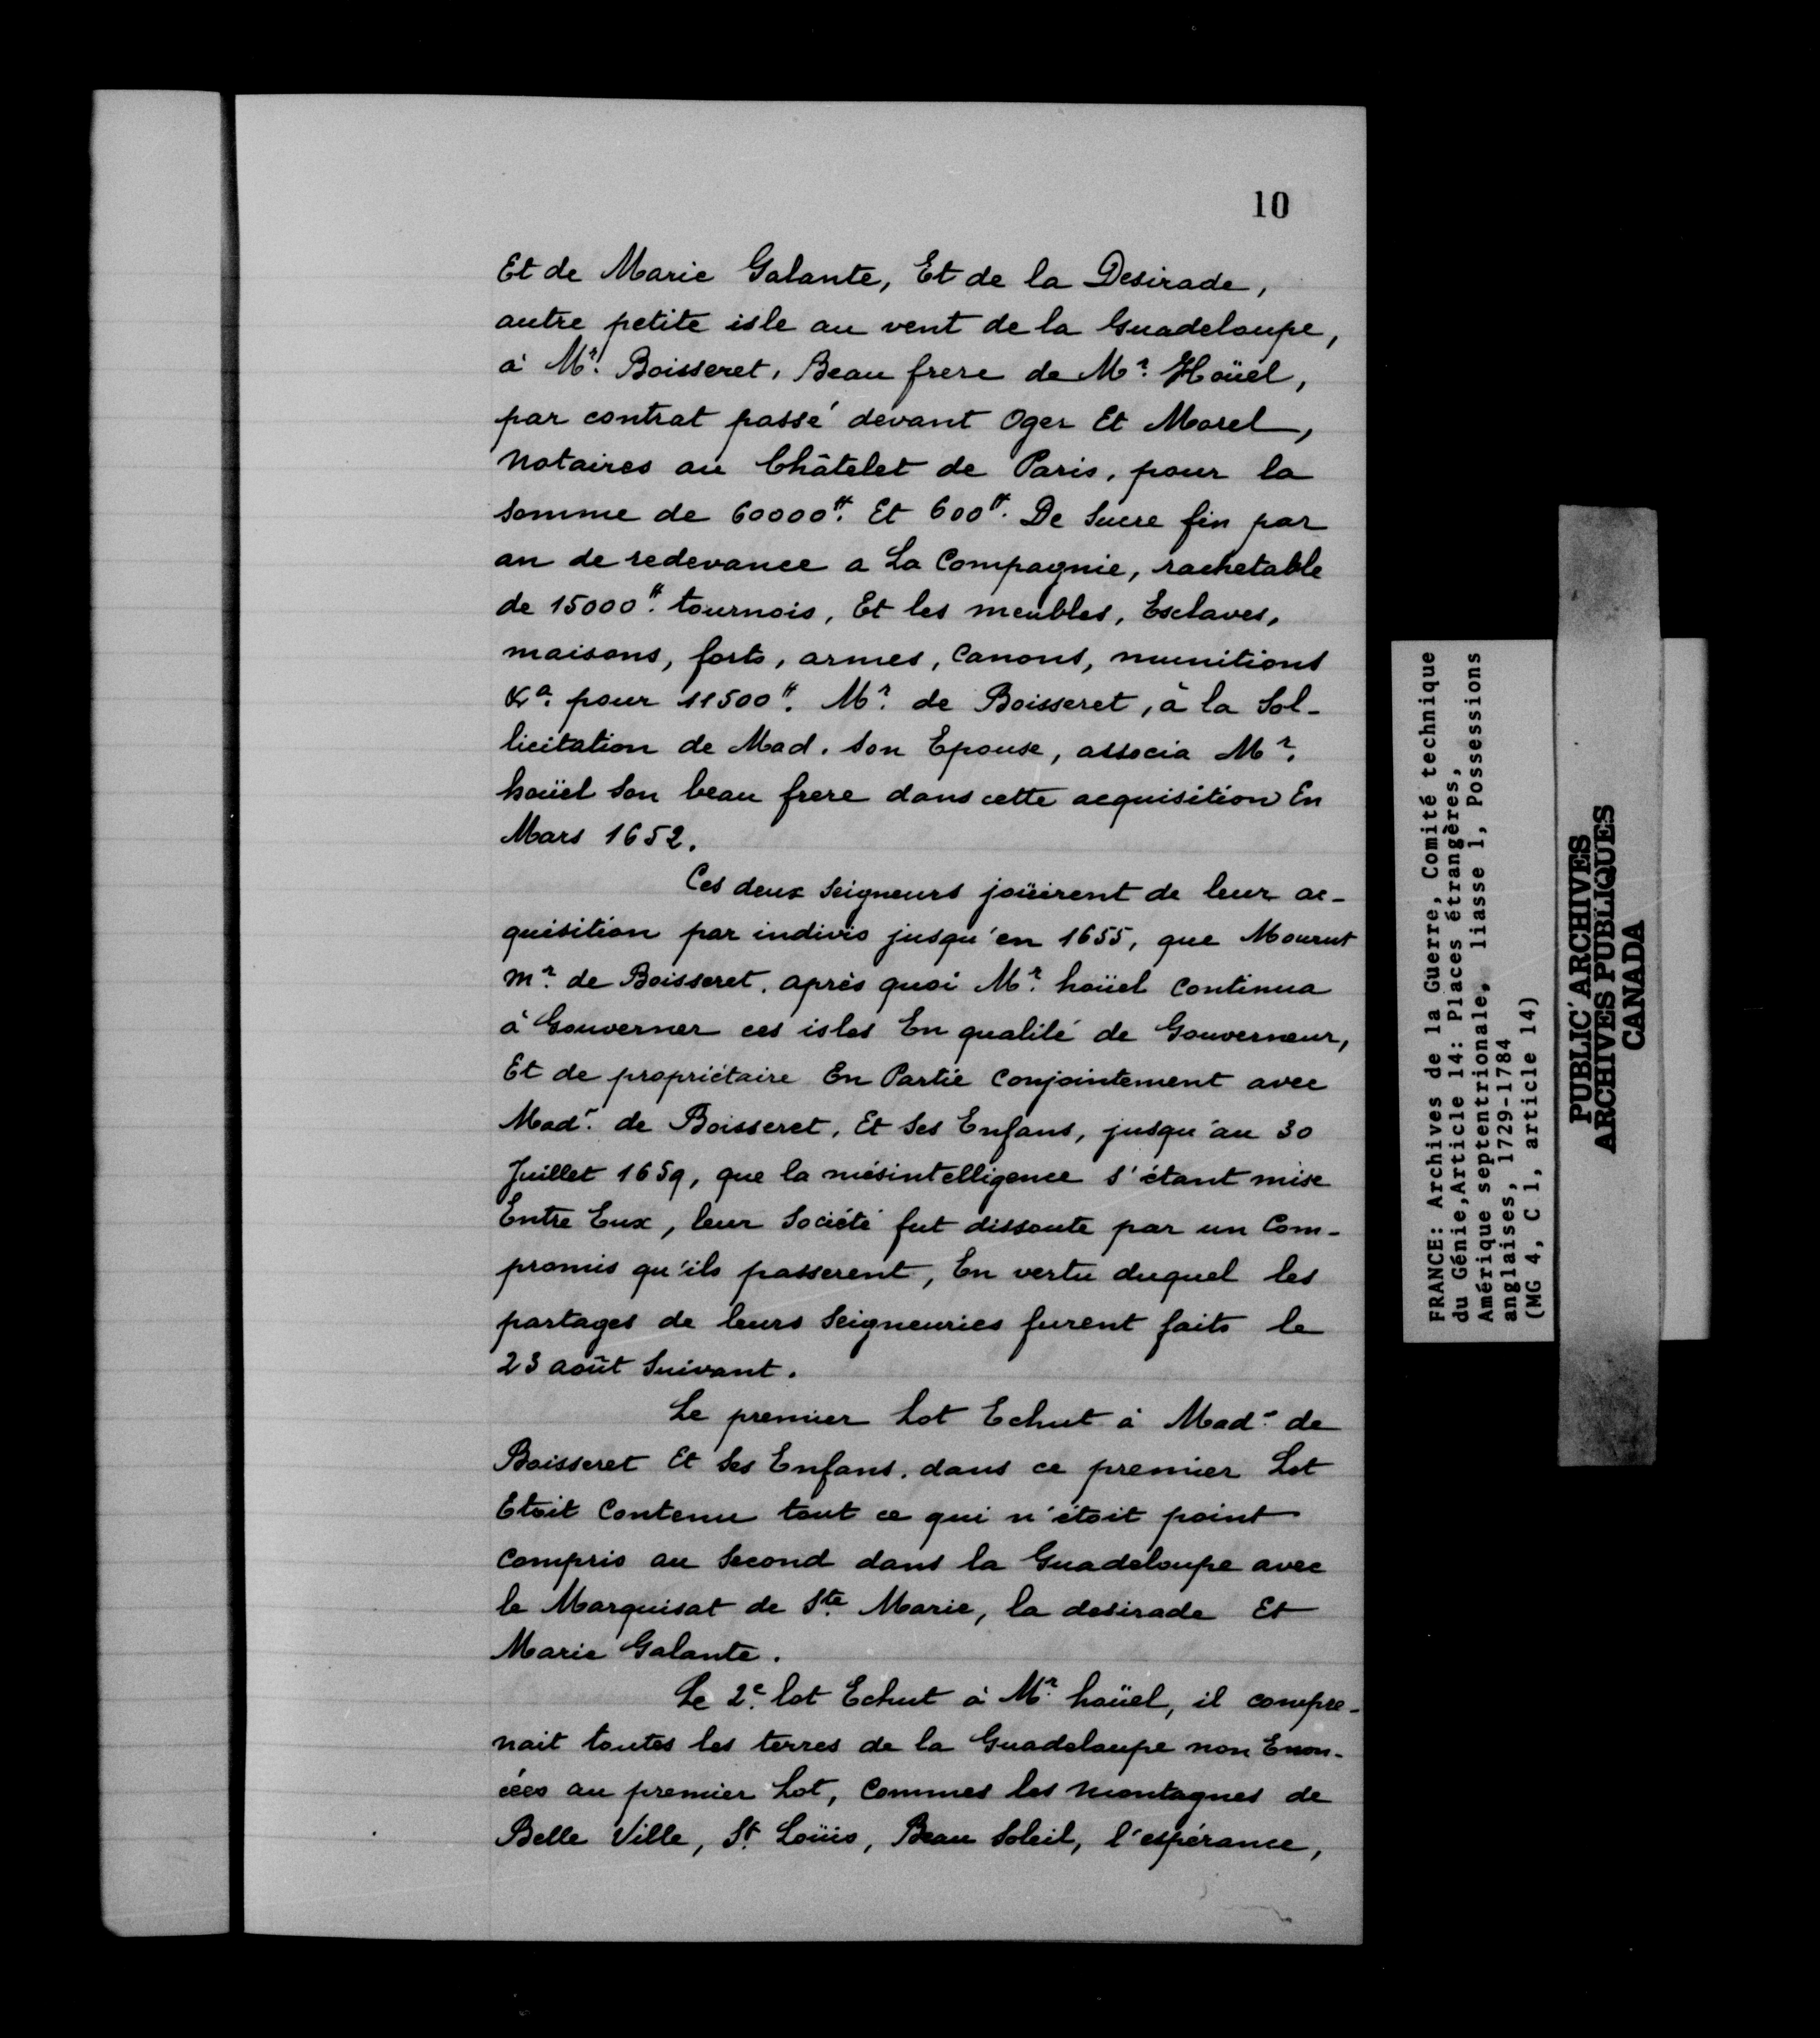 10
Et de Marie Galante, Et de la Desirade,
autre petite isle au vent de la Guadeloupe,
à Mr. Boisseret, Beau frere de Mr. Hoüel,
par contrat passé devant Oger Et Morel,
Notaires au Châtelet de Paris, pour la
somme de 60000#. Et 600#. De Sucre fin par
an de redevance a La Compagnie, rachetable
de 15000#. tournois, Et les meubles, Esclaves,
maisons, forts, armes, Canons, munitions
&a. pour 11500#. Mr. de Boisseret, à la Sol-
licitation de Mad. Son Epouse, associa Mr.
hoüel Son beau frere dans cette acquisition En
Mars 1652.
Ces deux Seigneurs joüirent de leur ac-
quisition par indivis jusqu'en 1655, que Mourut
mr. de Boisseret, après quoi Mr. hoüel Continua
à Gouverner ces isles En qualité de Gouverneur,
Et de propriétaire En Partie Conjointement avec
Made. de Boisseret, Et Ses Enfans, jusqu'au 30
Juillet 1659, que la mésintelligence s'étant mise
Entre Eux, leur Société fut dissoute par un Com-
promis qu'ils passerent, En vertu duquel les
partages de leurs Seigneuries furent faits le
23 août Suivant.
Le premier Lot Echut à Made. de
Boisseret Et Ses Enfans. dans ce premier Lot
Etoit Contenu tout ce qui n'étoit point
Compris au Second dans la Guadeloupe avec
le Marquisat de Ste. Marie, la desirade Et
Marie Galante.
Le 2e. lot Echut à Mr. hoüel, il compre-
nait toutes les terres de la Guadeloupe non Enon-
cées au premier Lot, Commes les Montagnes de
Belle Ville, St. Loüis, Beau Soleil, l'espérance,
FRANCE: Archives de la Guerre, Comité technique
du Génie,Article 14: Places étrangères,
Amérique septentrionale, liasse 1, Possessions
anglaises, 1729-1784
(MG 4, C 1, article 14)
PUBLIC ARCHIVES
ARCHIVES PUBLIQUES
CANADA